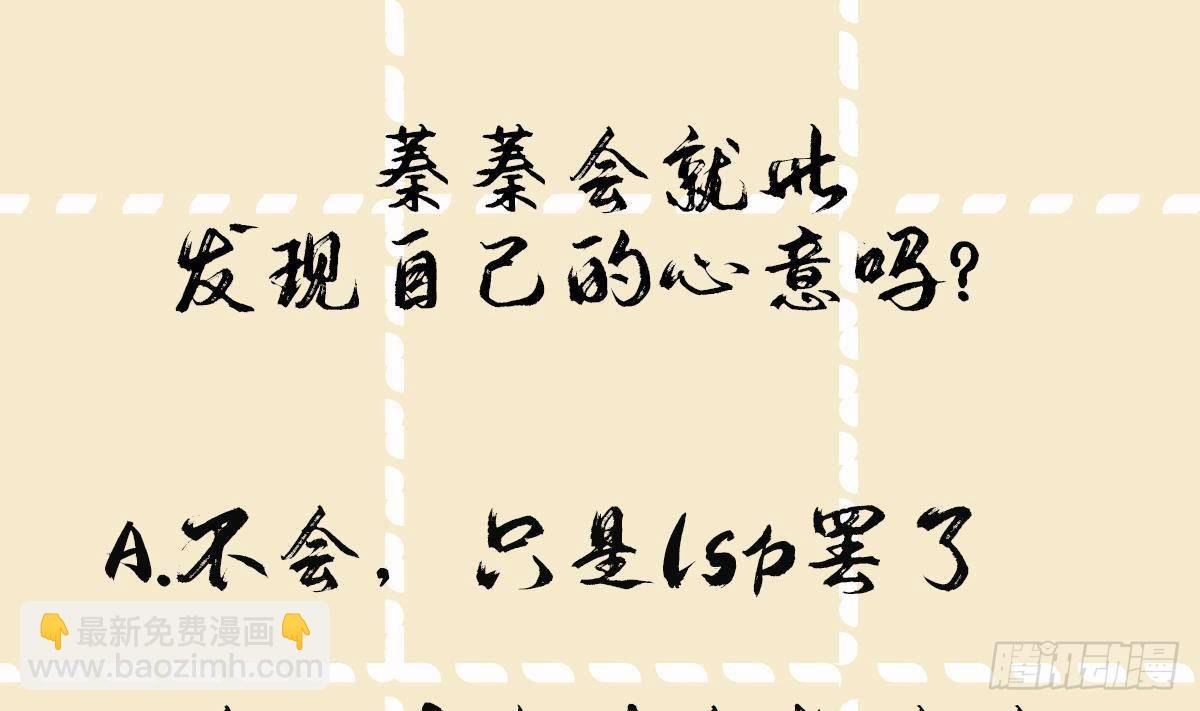 蓁蓁会就此
发现自己的心意吗?
A.不会，只是lsp罢了
👇最新免费漫画👇
www.baozimh.com
腾讯动漫